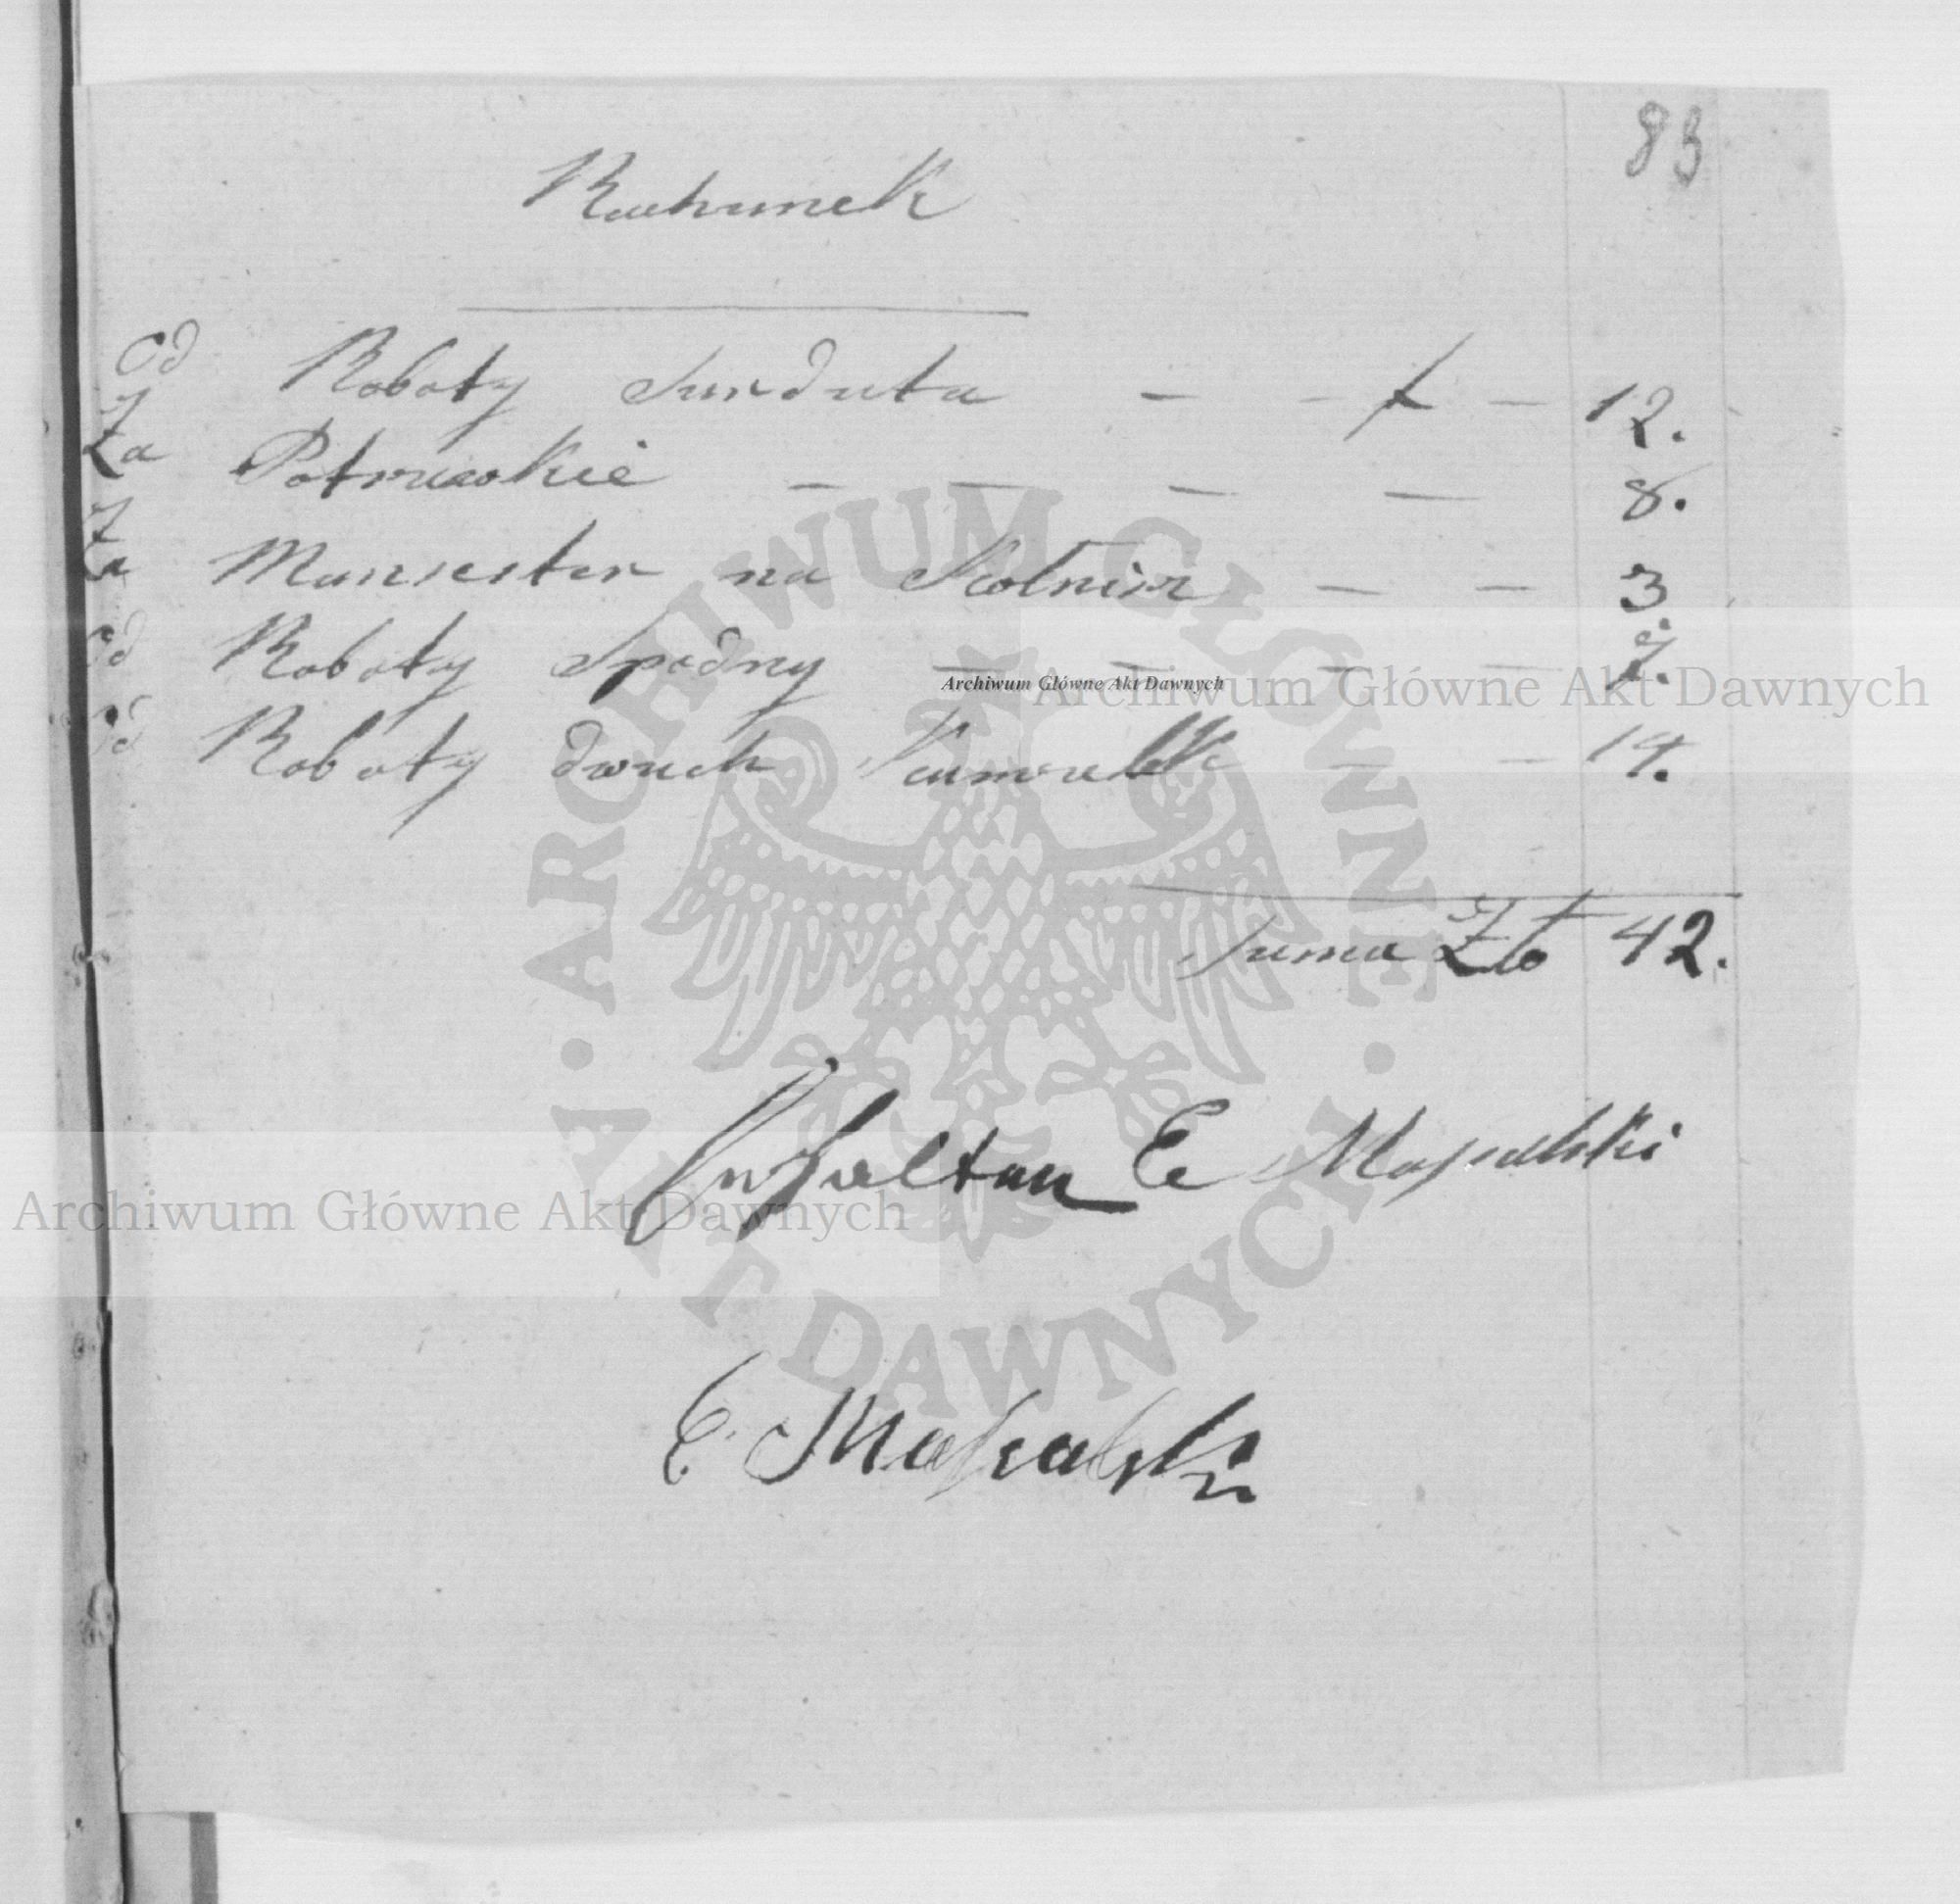 83
Rachunek
Od Roboty Surduta — - f — 12.
Za Potrzebkie — — — — 8.
Za Mansester na Kolnirz — — 3
Od Roboty Spodny — — — — 7.
Od Roboty dwuch Kamizelk — — 14.
Suma Zło 42.
E Massalski
E. Massalski
ARCHIWUM GŁÓWNE AKT DAWNYCH
Archiwum Główne Akt Dawnych
Archiwum Główne Akt Dawnych
Archiwum Główne Akt Dawnych